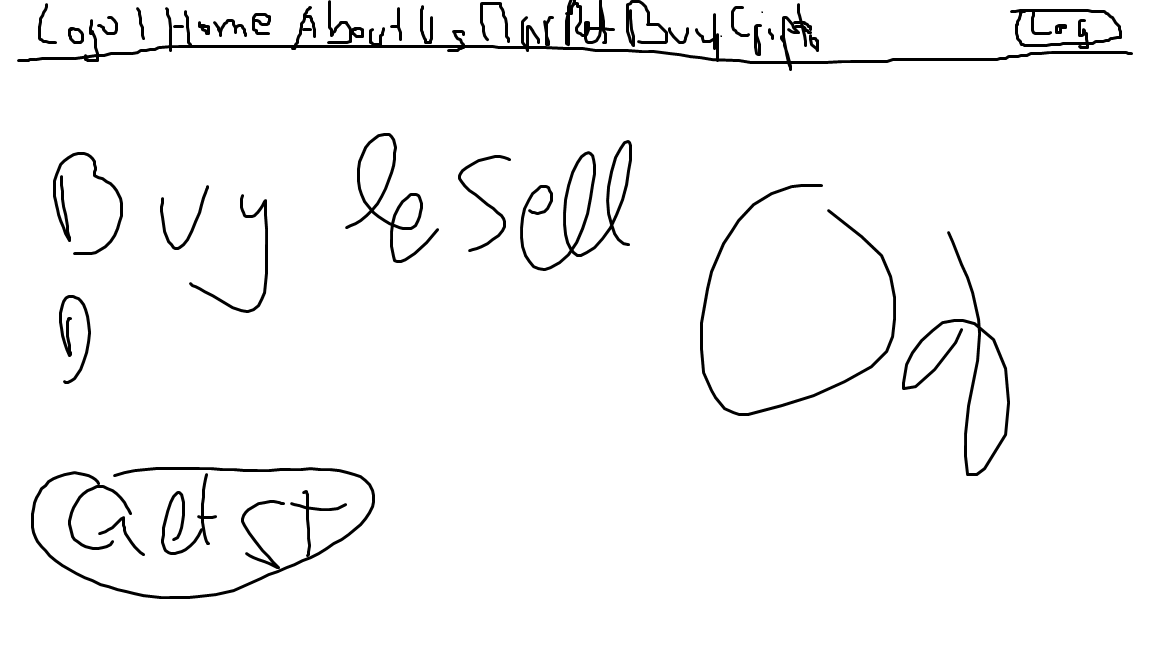 Logo | Home About Us Market Buy Cripto Log
Buy & Sell
D
Get ST